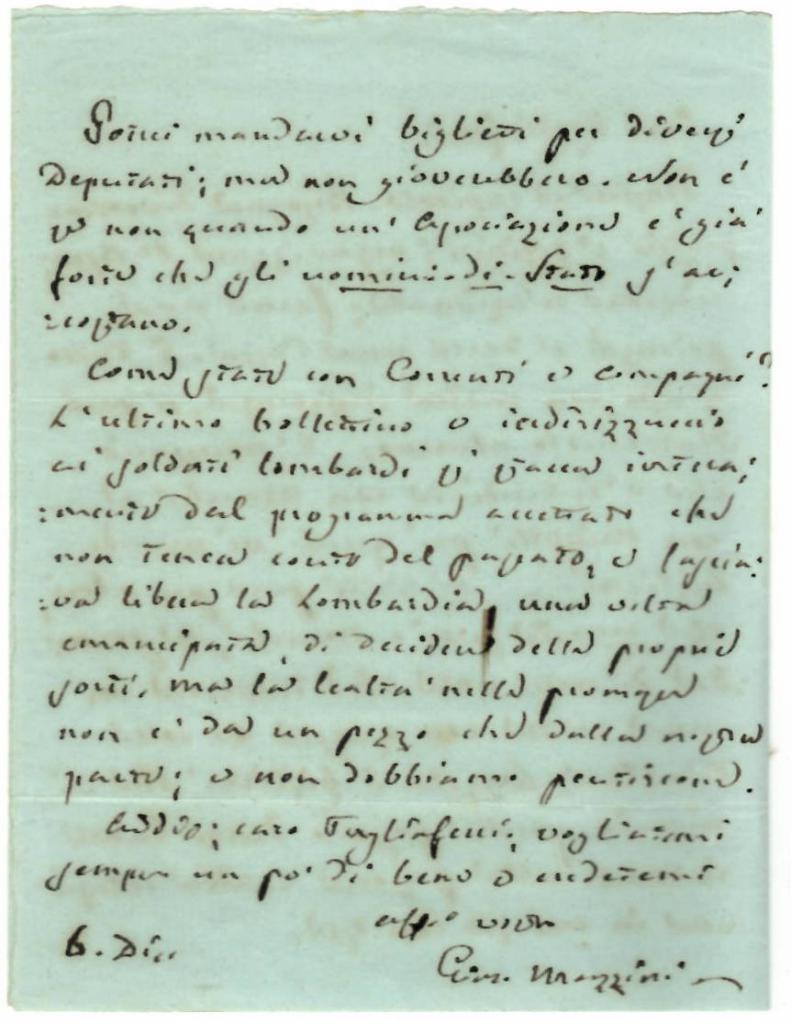 Potrei mandarvi biglietti per diversi
Deputati; ma non gioverebbero. Non è
se non quando un' Associazione è già
forte che gli uomini-di-Stato s'ac:
:costano.
Come state con Correnti e compagni?
L'ultimo bollettino o indirizzuccio
ai soldati lombardi si stacca intera:
:mente dal programma accettato che
non tenea conto del passato, e lascia:
:va libera la Lombardia, una volta
emancipata, di decidere delle proprie
sorti. ma la lealtà nelle promesse
non è da un pezzo che dalla nostra
parte; e non dobbiamo pentircene.
Addio; caro Tagliaferri, vogliatemi
sempre un po' di bene e credetemi
aff.o vostro
6. Dic.
Gius. Mazzini